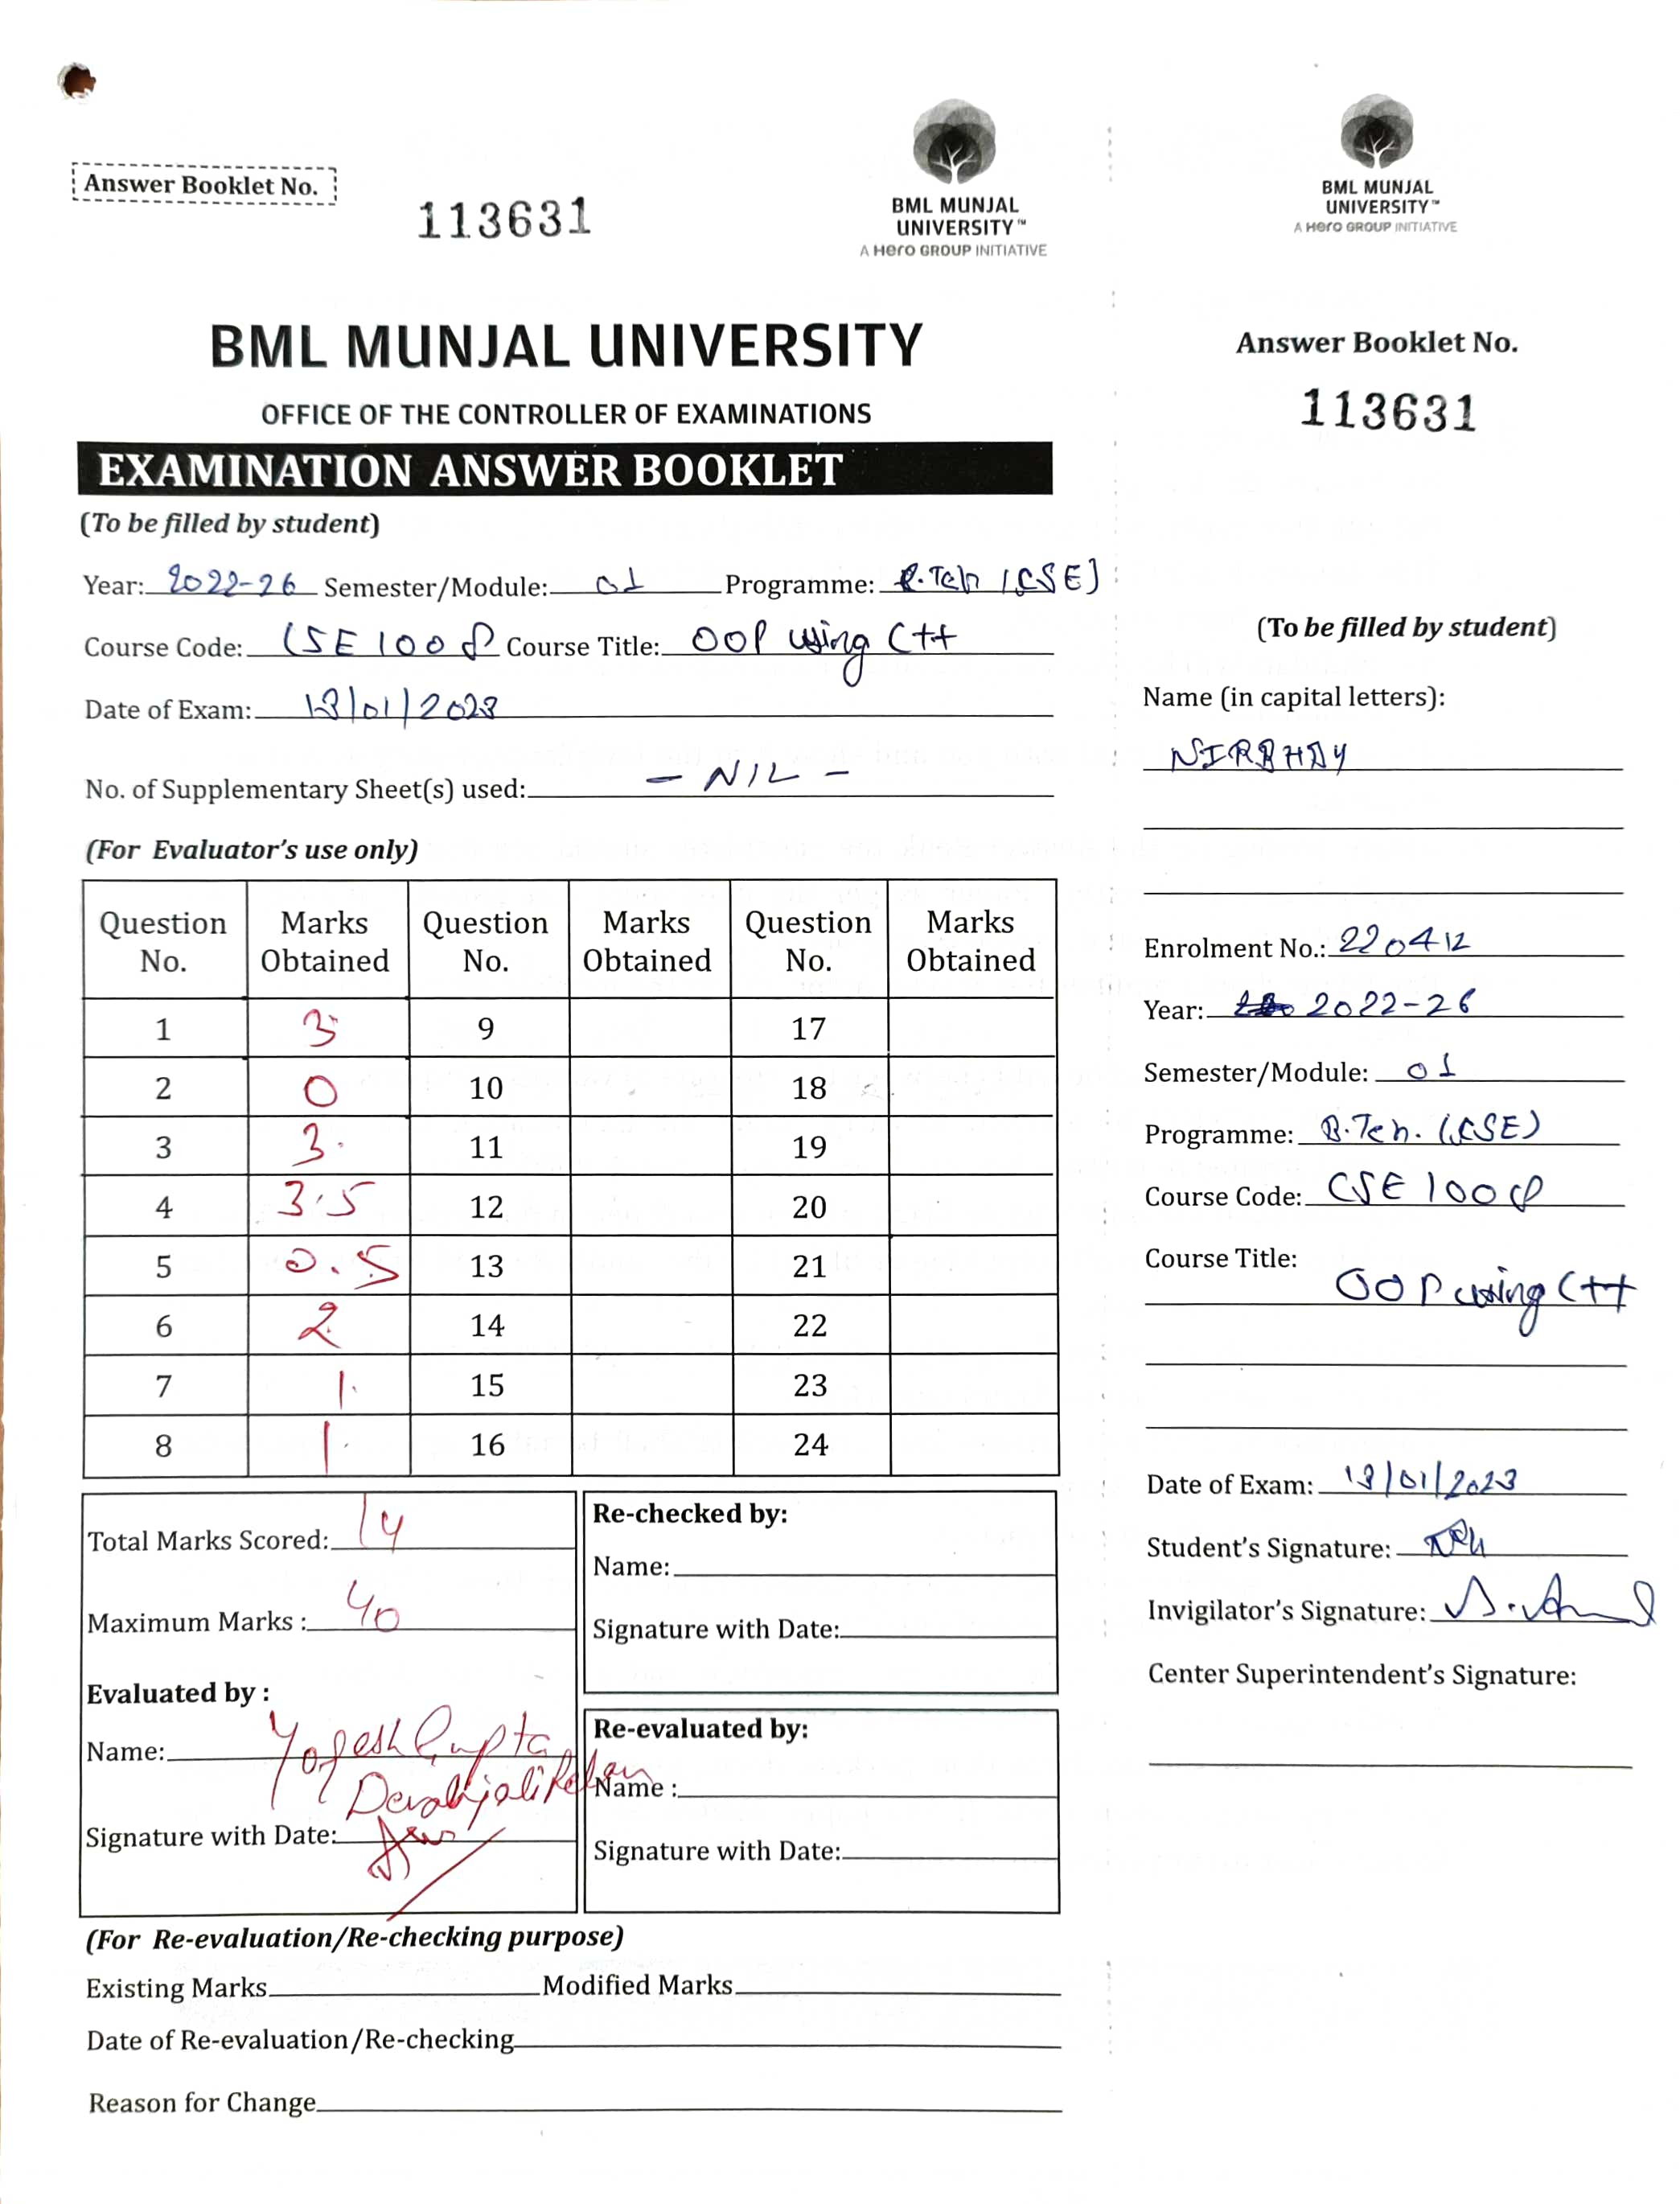 Answer Booklet No.
113631
BML MUNJAL
UNIVERSITY™
A Hero GROUP INITIATIVE
BML MUNJAL UNIVERSITY
OFFICE OF THE CONTROLLER OF EXAMINATIONS
EXAMINATION ANSWER BOOKLET
(To be filled by student)
Year: 2022-26 Semester/Module: 01 Programme: B.Teh (CSE)
Course Code: CSE 1008 Course Title: OOP using C++
Date of Exam: 13/01/2023
No. of Supplementary Sheet(s) used: - NIL -
(For Evaluator's use only)
Question No. Marks Obtained Question No. Marks Obtained Question No. Marks Obtained
1 3 9 17
2 0 10 18
3 3. 11 19
4 3.5 12 20
5 0.5 13 21
6 2 14 22
7 1. 15 23
8 1. 16 24
Total Marks Scored: 14
Maximum Marks : 40
Evaluated by :
Name: Yogesh Gupta
Signature with Date:
Re-checked by:
Name:
Signature with Date:
Re-evaluated by:
Name :
Signature with Date:
(For Re-evaluation/Re-checking purpose)
Existing Marks Modified Marks
Date of Re-evaluation/Re-checking
Reason for Change
BML MUNJAL
UNIVERSITY™
A Hero GROUP INITIATIVE
Answer Booklet No.
113631
(To be filled by student)
Name (in capital letters):
NIRBHAY
Enrolment No.: 220412
Year: 2022-26
Semester/Module: 01
Programme: B.Teh. (CSE)
Course Code: CSE 1008
Course Title:
OOP using C++
Date of Exam: 13/01/2023
Student's Signature:
Invigilator's Signature:
Center Superintendent's Signature: